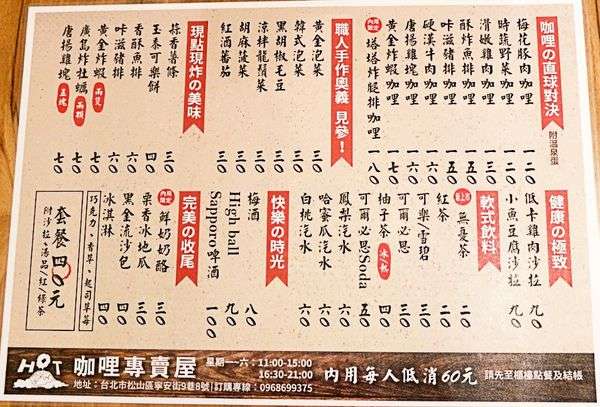 咖哩の直球對決
附溫泉蛋
梅花豚肉咖哩 一二〇
時蔬野菜咖哩 一二〇
滑嫩雞肉咖哩 一三〇
酥炸魚排咖哩 一五〇
咔滋豬排咖哩 一五〇
硬漢牛肉咖哩
黃金炸蝦咖哩 一七〇
唐揚雞塊咖哩
內用限定
塔塔炸腿排咖哩 一八〇
職人手作奧義 見參！
黃金泡菜 三〇
韓式泡菜 三〇
黑胡椒毛豆 三〇
涼拌龍鬚菜 三〇
胡麻菠菜 三〇
紅酒蕃茄 三〇
現點現炸の美味
蒜香薯條 三〇
玉泰可樂餅 四〇
香酥魚排 六〇
咔滋豬排 六〇
黃金炸蝦 兩隻 六〇
廣島炸牡蠣 兩顆 七〇
唐揚雞塊 五塊 七〇
健康の極致
低卡雞肉沙拉 九〇
小魚豆腐沙拉 九〇
軟式飲料
無憂茶 二〇
紅茶 二〇
可樂/雪碧 三〇
可爾必思 三〇
柚子茶 冰/熱 四〇
可爾必思Soda 五〇
鳳梨汽水 六〇
哈蜜瓜汽水 六〇
白桃汽水 六〇
快樂の時光
梅酒 八〇
High ball 九〇
Sapporo啤酒 一〇〇
完美の收尾
內用限定
鮮奶奶酪 三〇
栗香冰地瓜 三〇
黑金流沙包 四〇
冰淇淋 四〇
巧克力、香草、起司草莓
套餐四〇元
附沙拉、湯品/紅/綠茶
HOT 咖哩專賣屋
星期一~六：11:00-15:00
16:30-21:00
地址：台北市松山區寧安街9巷8號|訂購專線：0968699375
內用每人低消60元
請先至櫃檯點餐及結帳